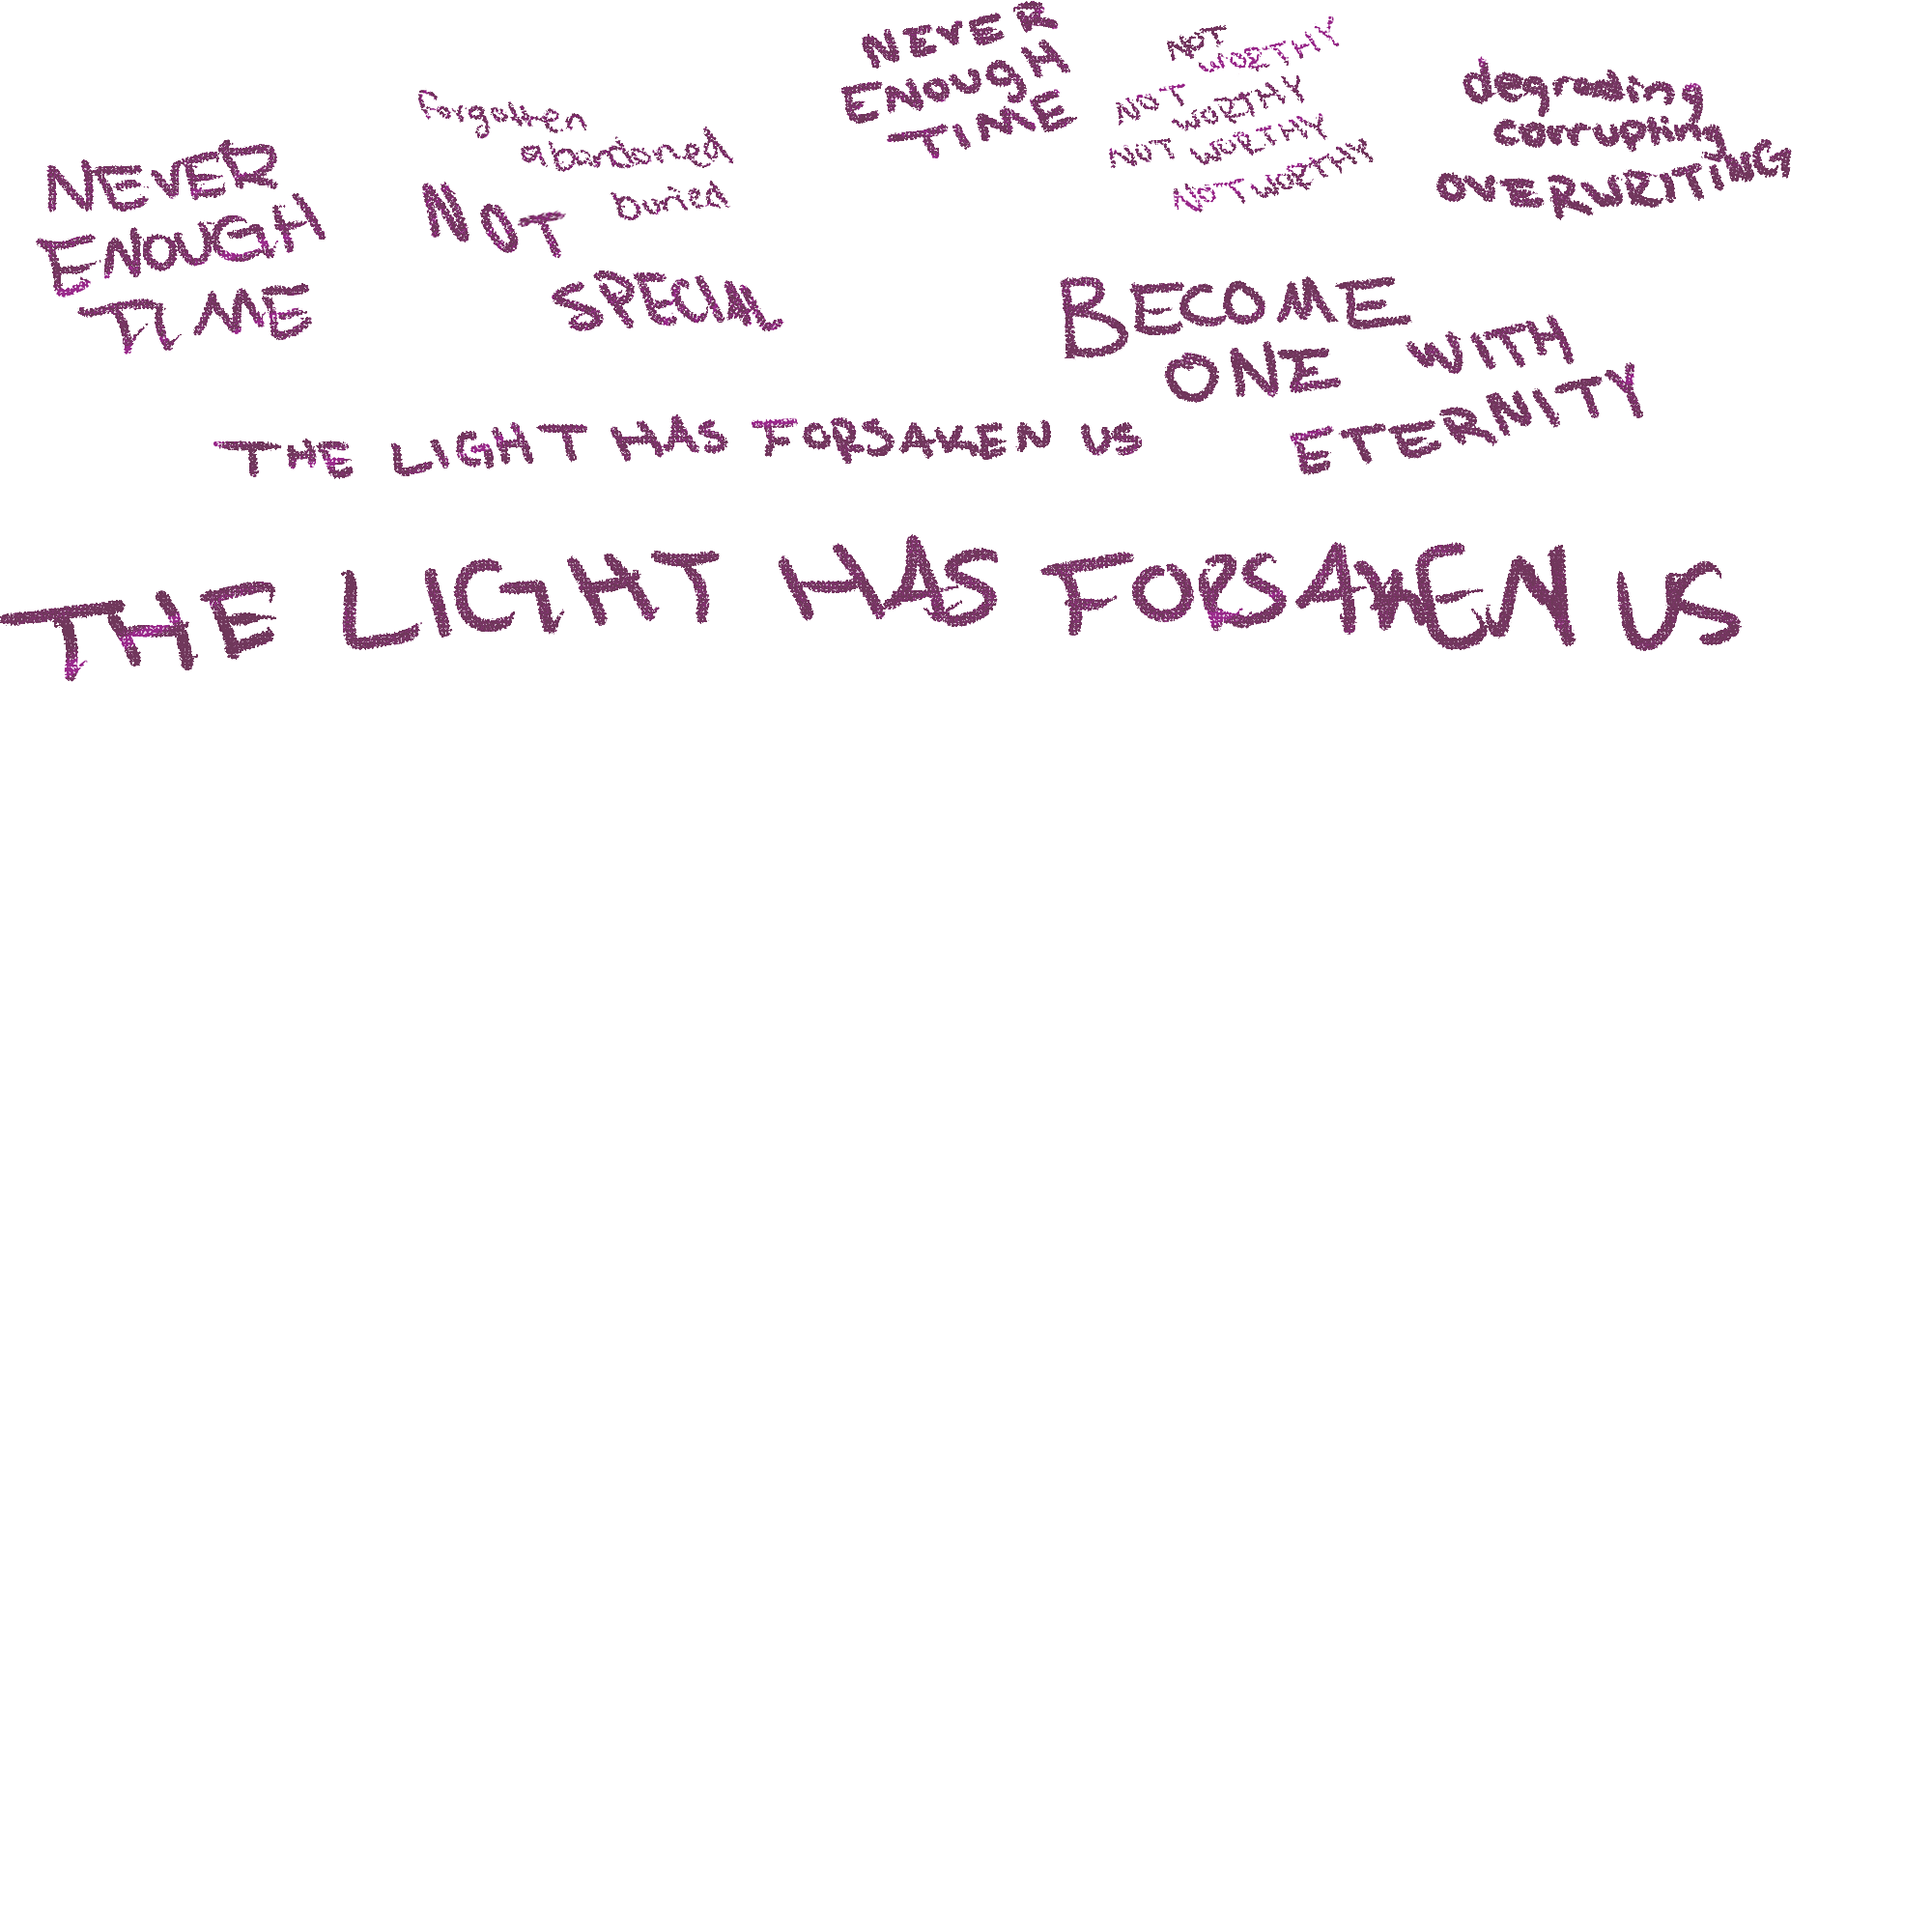 NEVER
ENOUGH
TIME
forgotten
abandoned
buried
NOT
SPECIAL
NEVER
ENOUGH
TIME
NOT
WORTHY
NOT
WORTHY
NOT WORTHY
NOT WORTHY
degrading
corrupting
OVERWRITING
BECOME
ONE WITH
ETERNITY
THE LIGHT HAS FORSAKEN US
THE LIGHT HAS FORSAKEN US